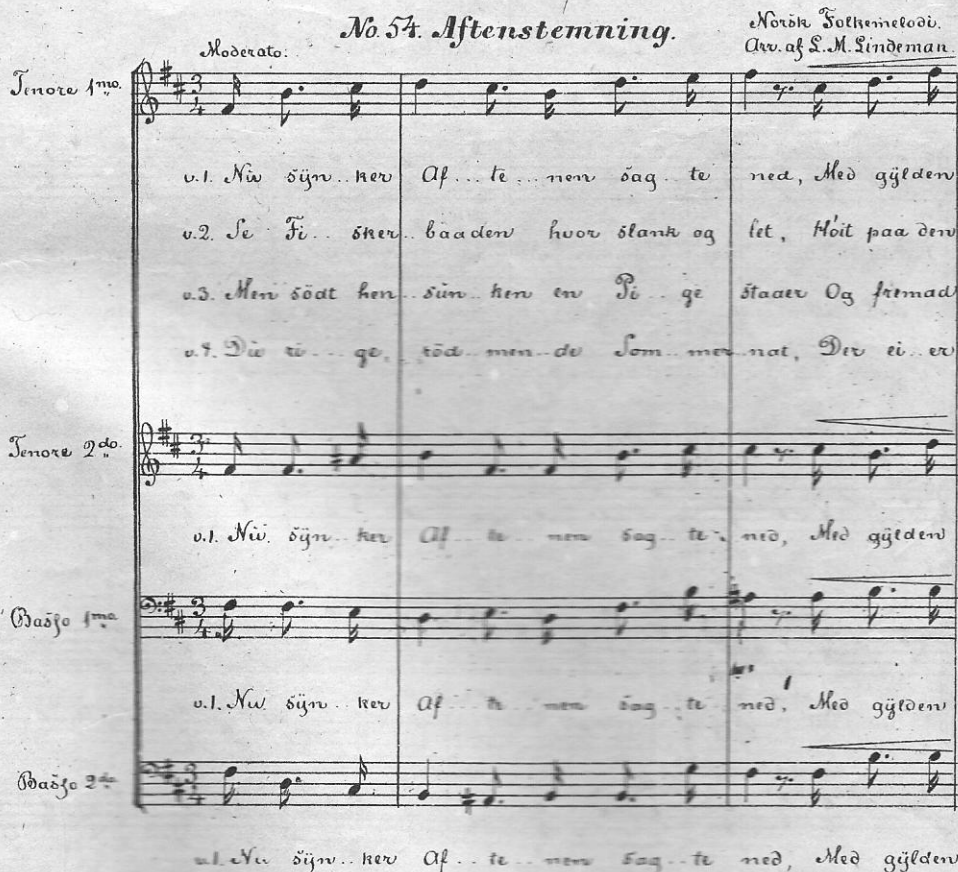 No. 54. Aftenstemning.
Norsk Folkemelodi.
Moderato.
Arr. af L. M. Lindeman.
Tenore 1mo.
3/4
v.1. Nu syn..ker Af...te..nen sag..te ned, Med gylden
v.2. Se Fi..sker..baaden hvor slank og let, Høit paa den
v.3. Men södt hen..sun..ken en Pi..ge staaer Og fremad
v.4. Du ri...ge, röd..men..de Som..mer..nat, Der ei..er
Tenore 2do.
3/4
v.1. Nu syn..ker Af..te..nen sag..te ned, Med gylden
Basso 1mo.
3/4
v.1. Nu syn..ker Af..te..nen sag..te ned, Med gylden
Basso 2do
3/4
v.1. Nu syn..ker Af..te..nen sag..te ned, Med gylden